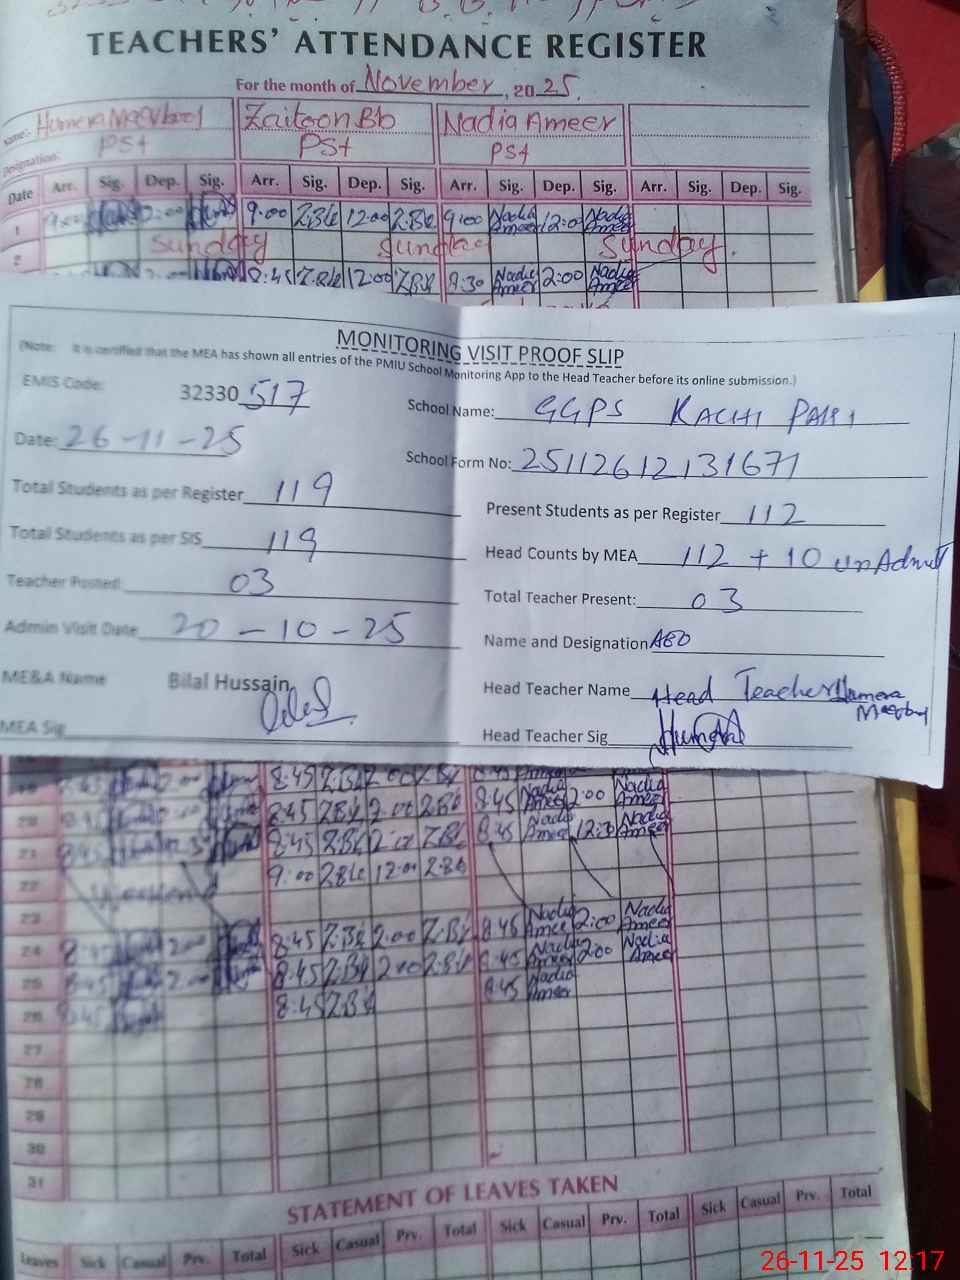 TEACHERS' ATTENDANCE REGISTER
For the month of November, 2025.
Name:- Humera Maqbool Zaitoon Bb Nadia Ameer
Designation: PSt PSt PSt
Date Arr. Sig. Dep. Sig. Arr. Sig. Dep. Sig. Arr. Sig. Dep. Sig. Arr. Sig. Dep. Sig.
1 9:00 9:00 Z.Bb 12:00 Z.Bb 9:00 Nadia Ameer 12:00 Nadia Ameer
2 Sunday Sunday Sunday.
8:45 Z.Bb 12:00 Z.Bb 8:30 Nadia Ameer 2:00 Nadia Ameer
MONITORING VISIT PROOF SLIP
(Note: It is certified that the MEA has shown all entries of the PMIU School Monitoring App to the Head Teacher before its online submission.)
EMIS Code: 32330 517
School Name: GGPS KACHI PAKI
Date: 26-11-25
School Form No: 25112612131671
Total Students as per Register 119
Present Students as per Register 112
Total Students as per SIS 119
Head Counts by MEA 112 + 10 UnAdmit
Teacher Posted: 03
Total Teacher Present: 03
Admin Visit Date 20-10-25
Name and Designation AEO
ME&A Name Bilal Hussain
Head Teacher Name Head Teacher Humera Maqbool
MEA Sig
Head Teacher Sig
8:45 Z.Bb 2:00 Z.Bb 8:45
20 8:45 2:00 8:45 Z.Bb 2:00 Z.Bb 8:45 Nadia Ameer 2:00 Nadia Ameer
21 8:45 8:45 Z.Bb 2:00 Z.Bb 8:45 Nadia Ameer 12:30 Nadia Ameer
22 Weekend 9:00 Z.Bb 12:00 Z.Bb
23
24 8:45 2:00 8:45 Z.Bb 2:00 Z.Bb 8:45 Nadia Ameer 2:00 Nadia Ameer
25 8:45 2:00 8:45 Z.Bb 2:00 Z.Bb 8:45 Nadia Ameer 2:00 Nadia Ameer
26 8:45 8:45 Z.Bb 8:45 Nadia Ameer
27
28
29
30
31
STATEMENT OF LEAVES TAKEN
Leaves Sick Casual Prv. Total Sick Casual Prv. Total Sick Casual Prv. Total Sick Casual Prv. Total
26-11-25 12:17